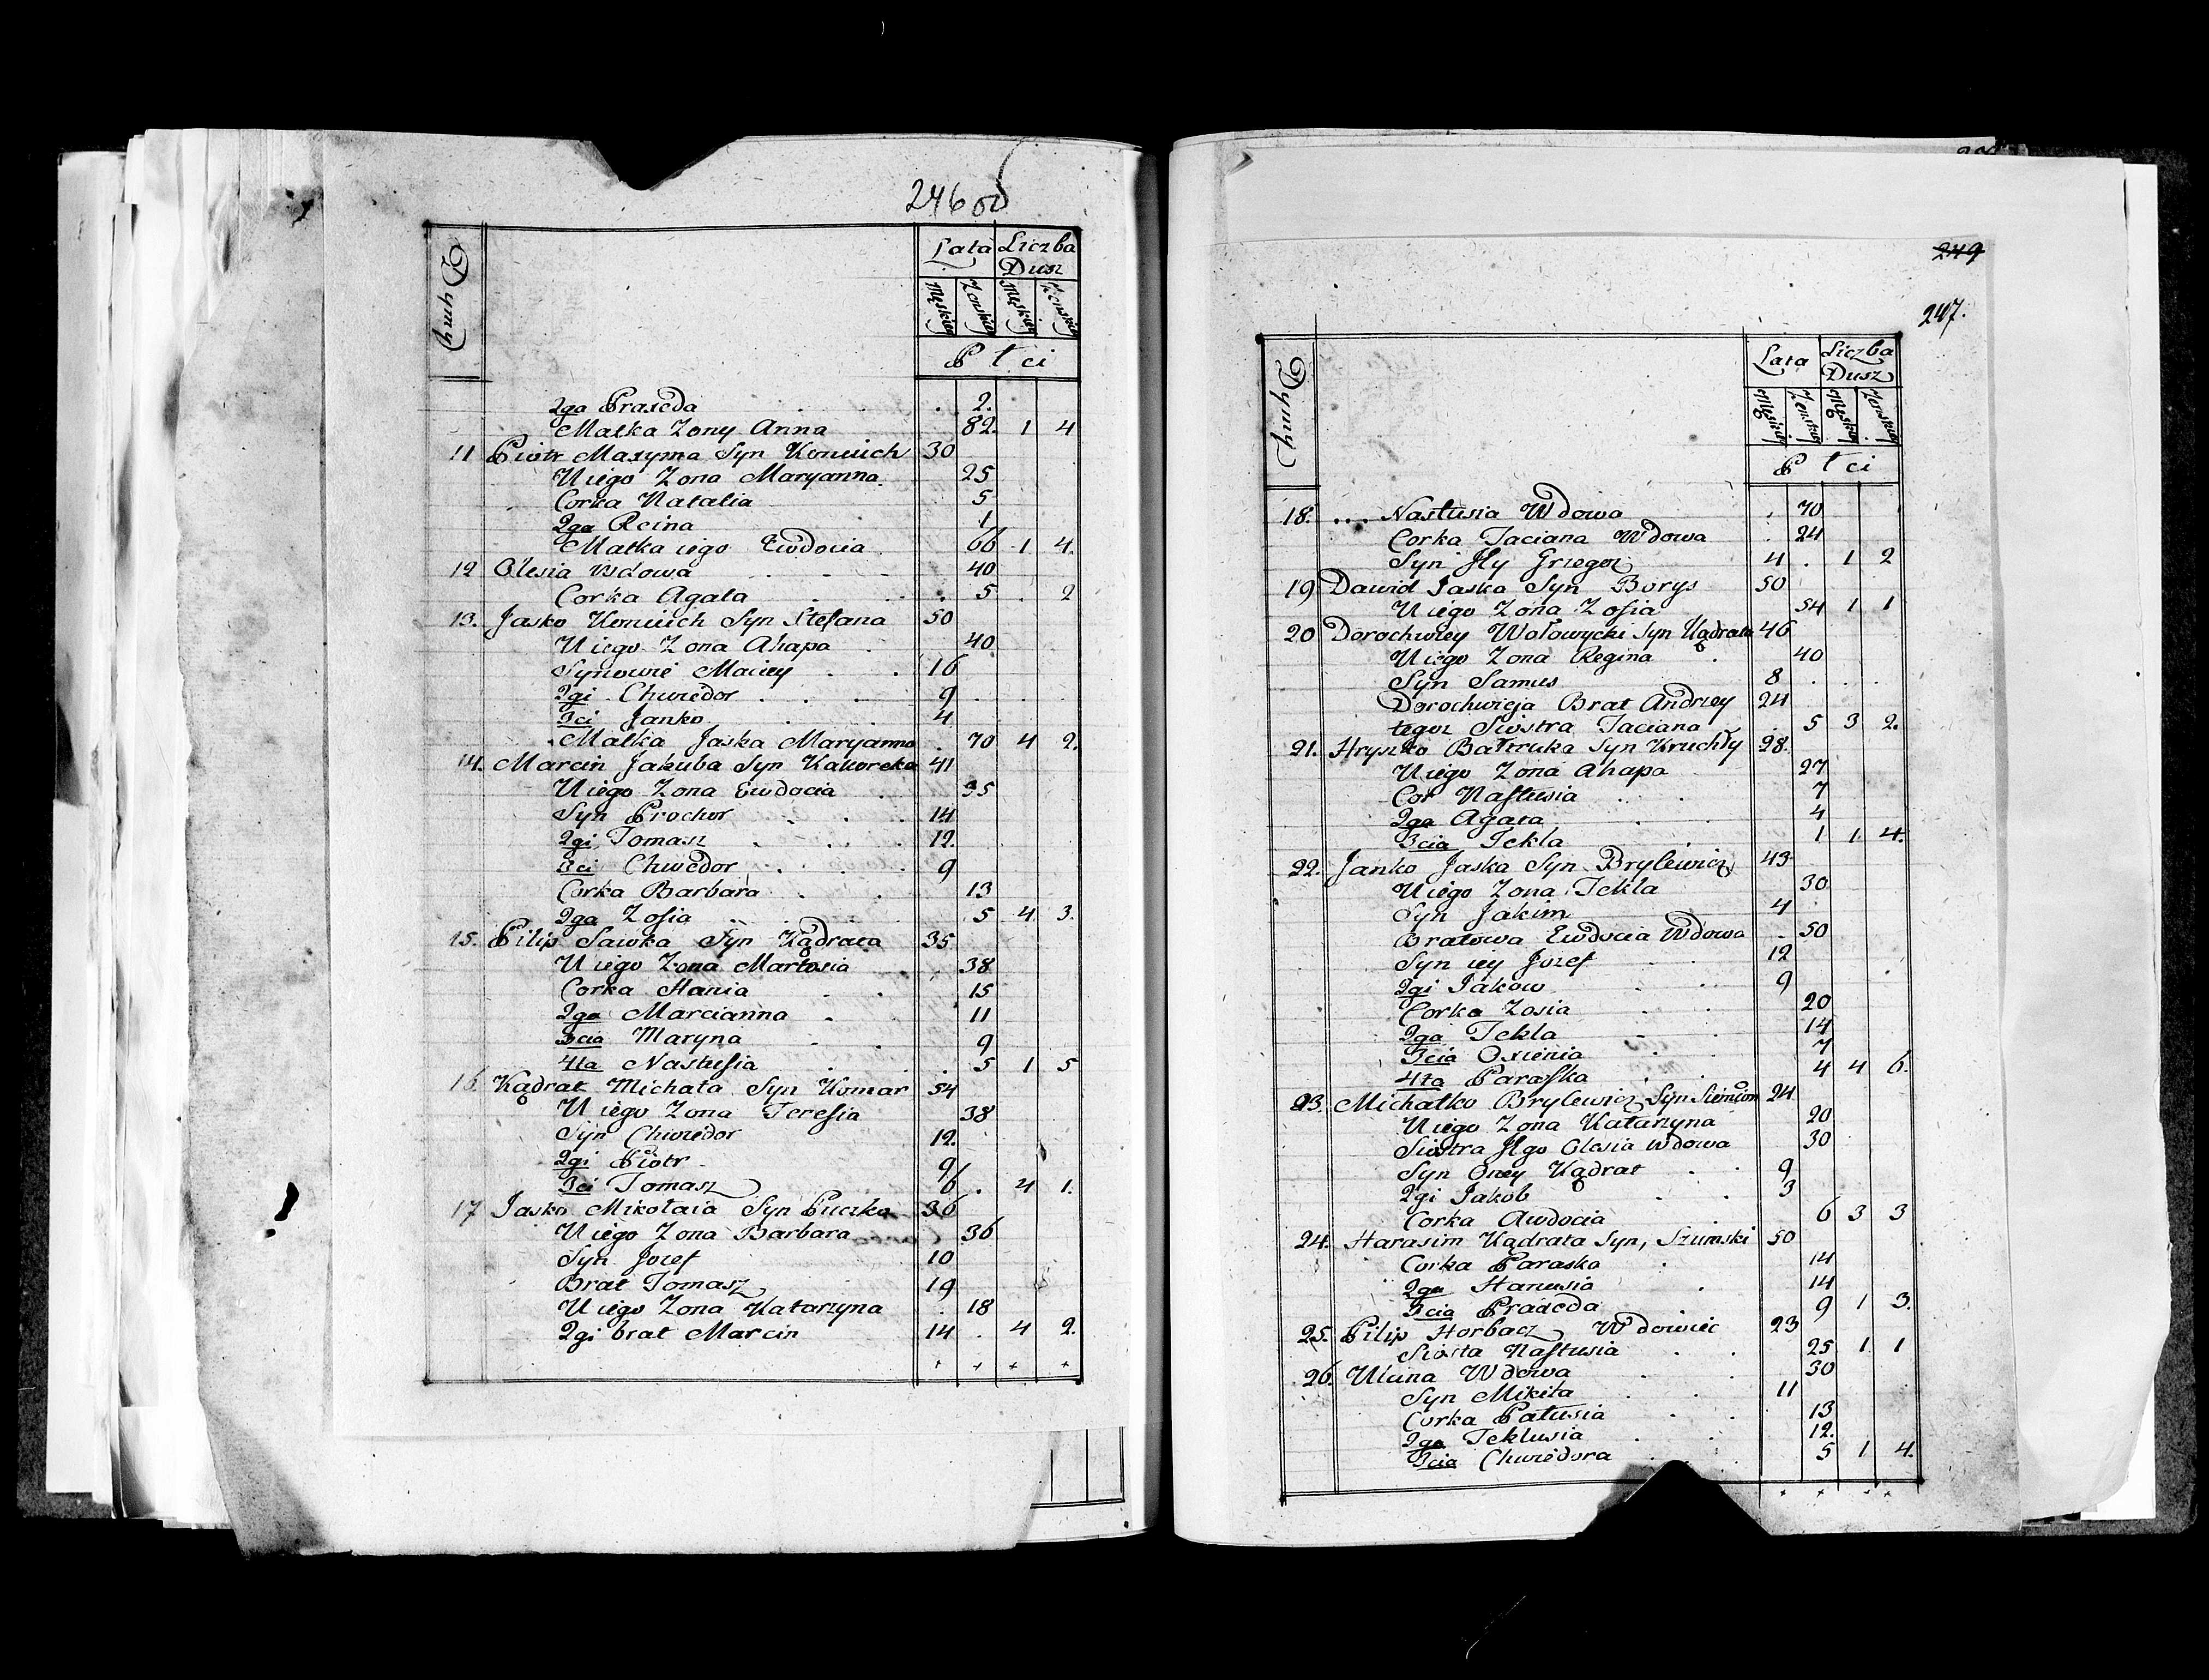 246 об
Dymy
Lata Liczba Dusz
Męskiey Zenskiey Męskiey Zenskiey
Płci
2ga Praxeda . 2.
Matka Zony Anna 82. 1 4
11 Piotr Maxyma Syn Koniuch 30
U iego Zona Maryanna 25
Corka Natalia 5
2ga Reina 1
Matka iego Ewdocia 66 1 4.
12 Olesia Wdowa 40
Corka Agata . 5 . 2
13. Jasko Koniuch Syn Stefana 50
U iego Zona Ahapa 40
Synowie Maciey 16
2gi Chwedor 9
3ci Janko 4
Matka Jaska Maryanna . 70 4 2.
14. Marcin Jakuba Syn 41
U iego Zona Ewdocia 35
Syn Prochor 14
2gi Tomasz 12.
3ci Chwedor 9
Corka Barbara 13
2ga Zofia 5 4 3.
15. Pilip Sawka Syn Kądrata 35
U iego Zona Martosia 38
Corka Hania 15
2ga Marcianna 11
3cia Maryna 9
4ta Nastusia 5 1 5
16 Kądrat Michała Syn Komar 54
U iego Zona Teresia 38
Syn Chwedor 12.
2gi Piotr 9
3ci Tomasz 6 . 4 1.
17 Jasko Mikołaia Syn Puczko 36
U iego Zona Barbara 36
Syn Jozef 10
Brat Tomasz 19
U iego Zona Katarzyna . 18
2gi brat Marcin 14 . 4 2.
+ + + +
249
247.
Dymy
Lata Liczba Dusz
Męskiey Zenskiey Męskiey Zenskiey
Płci
18. .... Nastusia Wdowa . 70
Corka Taciana Wdowa . 24
Syn Jły Grzegorz 4 . 1 2
19 Dawid Jaska Syn Borys 50
U iego Zona Zofia 54 1 1
20 Dorochwiey Wołowycki Syn Kądrata 46
U iego Zona Regina 40
Syn Samus 8 . . .
Dorochwieja Brat Andrzey 24
tegoz Siostra Taciana . 5 3 2.
21. Hryszko Bałtruka Syn Kruchły 28.
U iego Zona Ahapa 27
Cor Nastusia 7
2ga Agata 4
3cia Tekla 1 1 4.
22. Janko Jaska Syn Brylewicz 43
U iego Zona Tekla 30
Syn Jakim 4
Bratowa Ewdocia Wdowa . 50
Syn iey Jozef 12
2gi Jakow 9
Corka Zosia 20
2ga Tekla 14
3cia Oxienia 7
4ta Paraska 4 4 6.
23. Michałko Brylewicz Syn Siemion 24
U iego Zona Katarzyna 20
Siostra Jłgo Olesia Wdowa 30
Syn Oney Kądrat 9
2gi Jakob 3
Corka Awdocia 6 3 3
24. Harasim Kądrata Syn, Szumski 50
Corka Paraska 14
2ga Hanusia 14
3cia Praxeda 9 1 3.
25. Pilip Horbacz Wdowiec 23
Siosta Nastusia 25 1 1
26. Ulana Wdowa 30
Syn Mikita 11
Corka Patusia 13
2ga Teklusia 12.
3cia Chwedora 5 1 4.
+ + + +